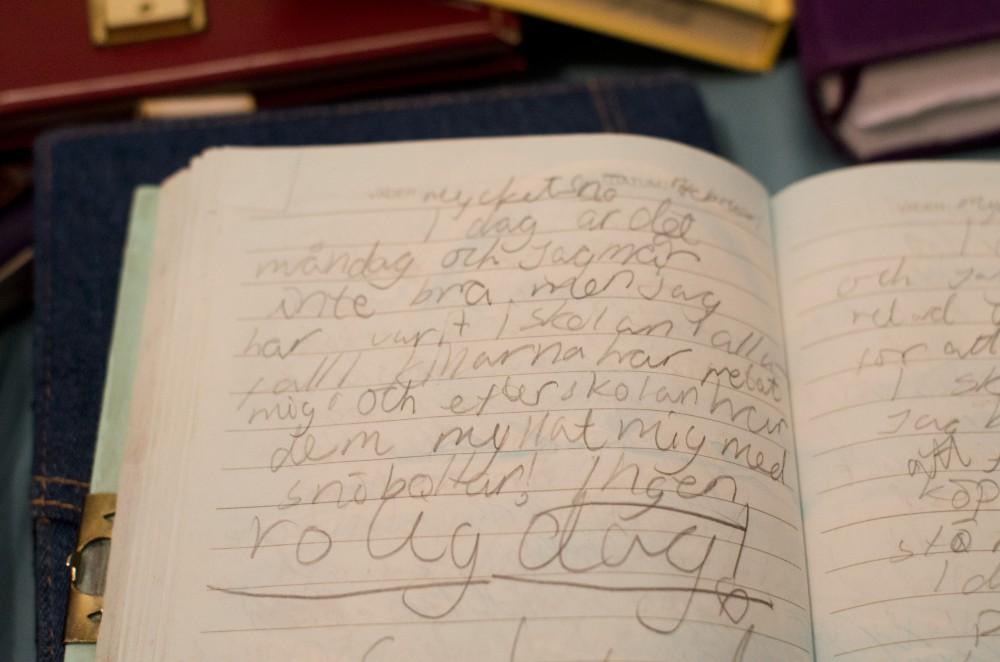 VÄDER: mycket snö DATUM:
I dag är det
måndag och Jag mår
inte bra, men jag
har varit I skolan I alla
fall! killarna har retat
mig och efter skolan har
dem myllat mig med
snöbollar! Ingen
rolig dag!
VÄDER: my
I
och ja
för att
I sk
Jag
att
köp
stå
I d